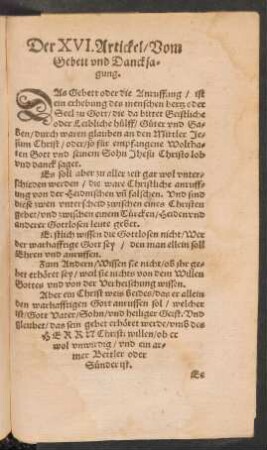 Der XVI. Artickel/Vom
Gebett vnd Dancksa-
gung.
DAs Gebett oder die Anruffung / ist
ein erhebung des menschen hertz oder
Seel zu Gott / die da bittet Geistliche
oder Leibliche hülff / Güter vnd Ga-
ben / durch waren glauben an den Mittler Je-
sum Christ / oder / so für empfangene Woltha-
ten Gott vnd seinem Sohn Jhesu Christo lob
vnd danck saget.
Es soll aber zu aller zeit gar wol vnter-
schieden werden / die ware Christliche anruff-
ung von der Heidnischen vñ falschen. Vnd sind
diese zwen vnterscheid zwischen eines Christen
gebet / vnd zwischen einem Türcken / Heiden vnd
anderer Gottlosen leute gebet.
Erstlich wissen die Gottlosen nicht / Wer
der warhafftige Gott sey / den man allein soll
Ehren vnd anruffen.
Zum Andern / Wissen sie nicht / ob jhr ge-
bet erhöret sey / weil sie nichts von dem Willen
Gottes vnd von der Verheischung wissen.
Aber ein Christ weis beides / das er allein
den warhafftigen Gott anruffen sol / welcher
ist / Gott Vater / Sohn / vnd heiliger Geist. Vnd
Gleubet / das sein gebet erhöret werde / vmb des
HERRN Christi willen / ob er
wol vnwirdig / vnd ein ar-
mer Bettler oder
Sünder ist.
Es